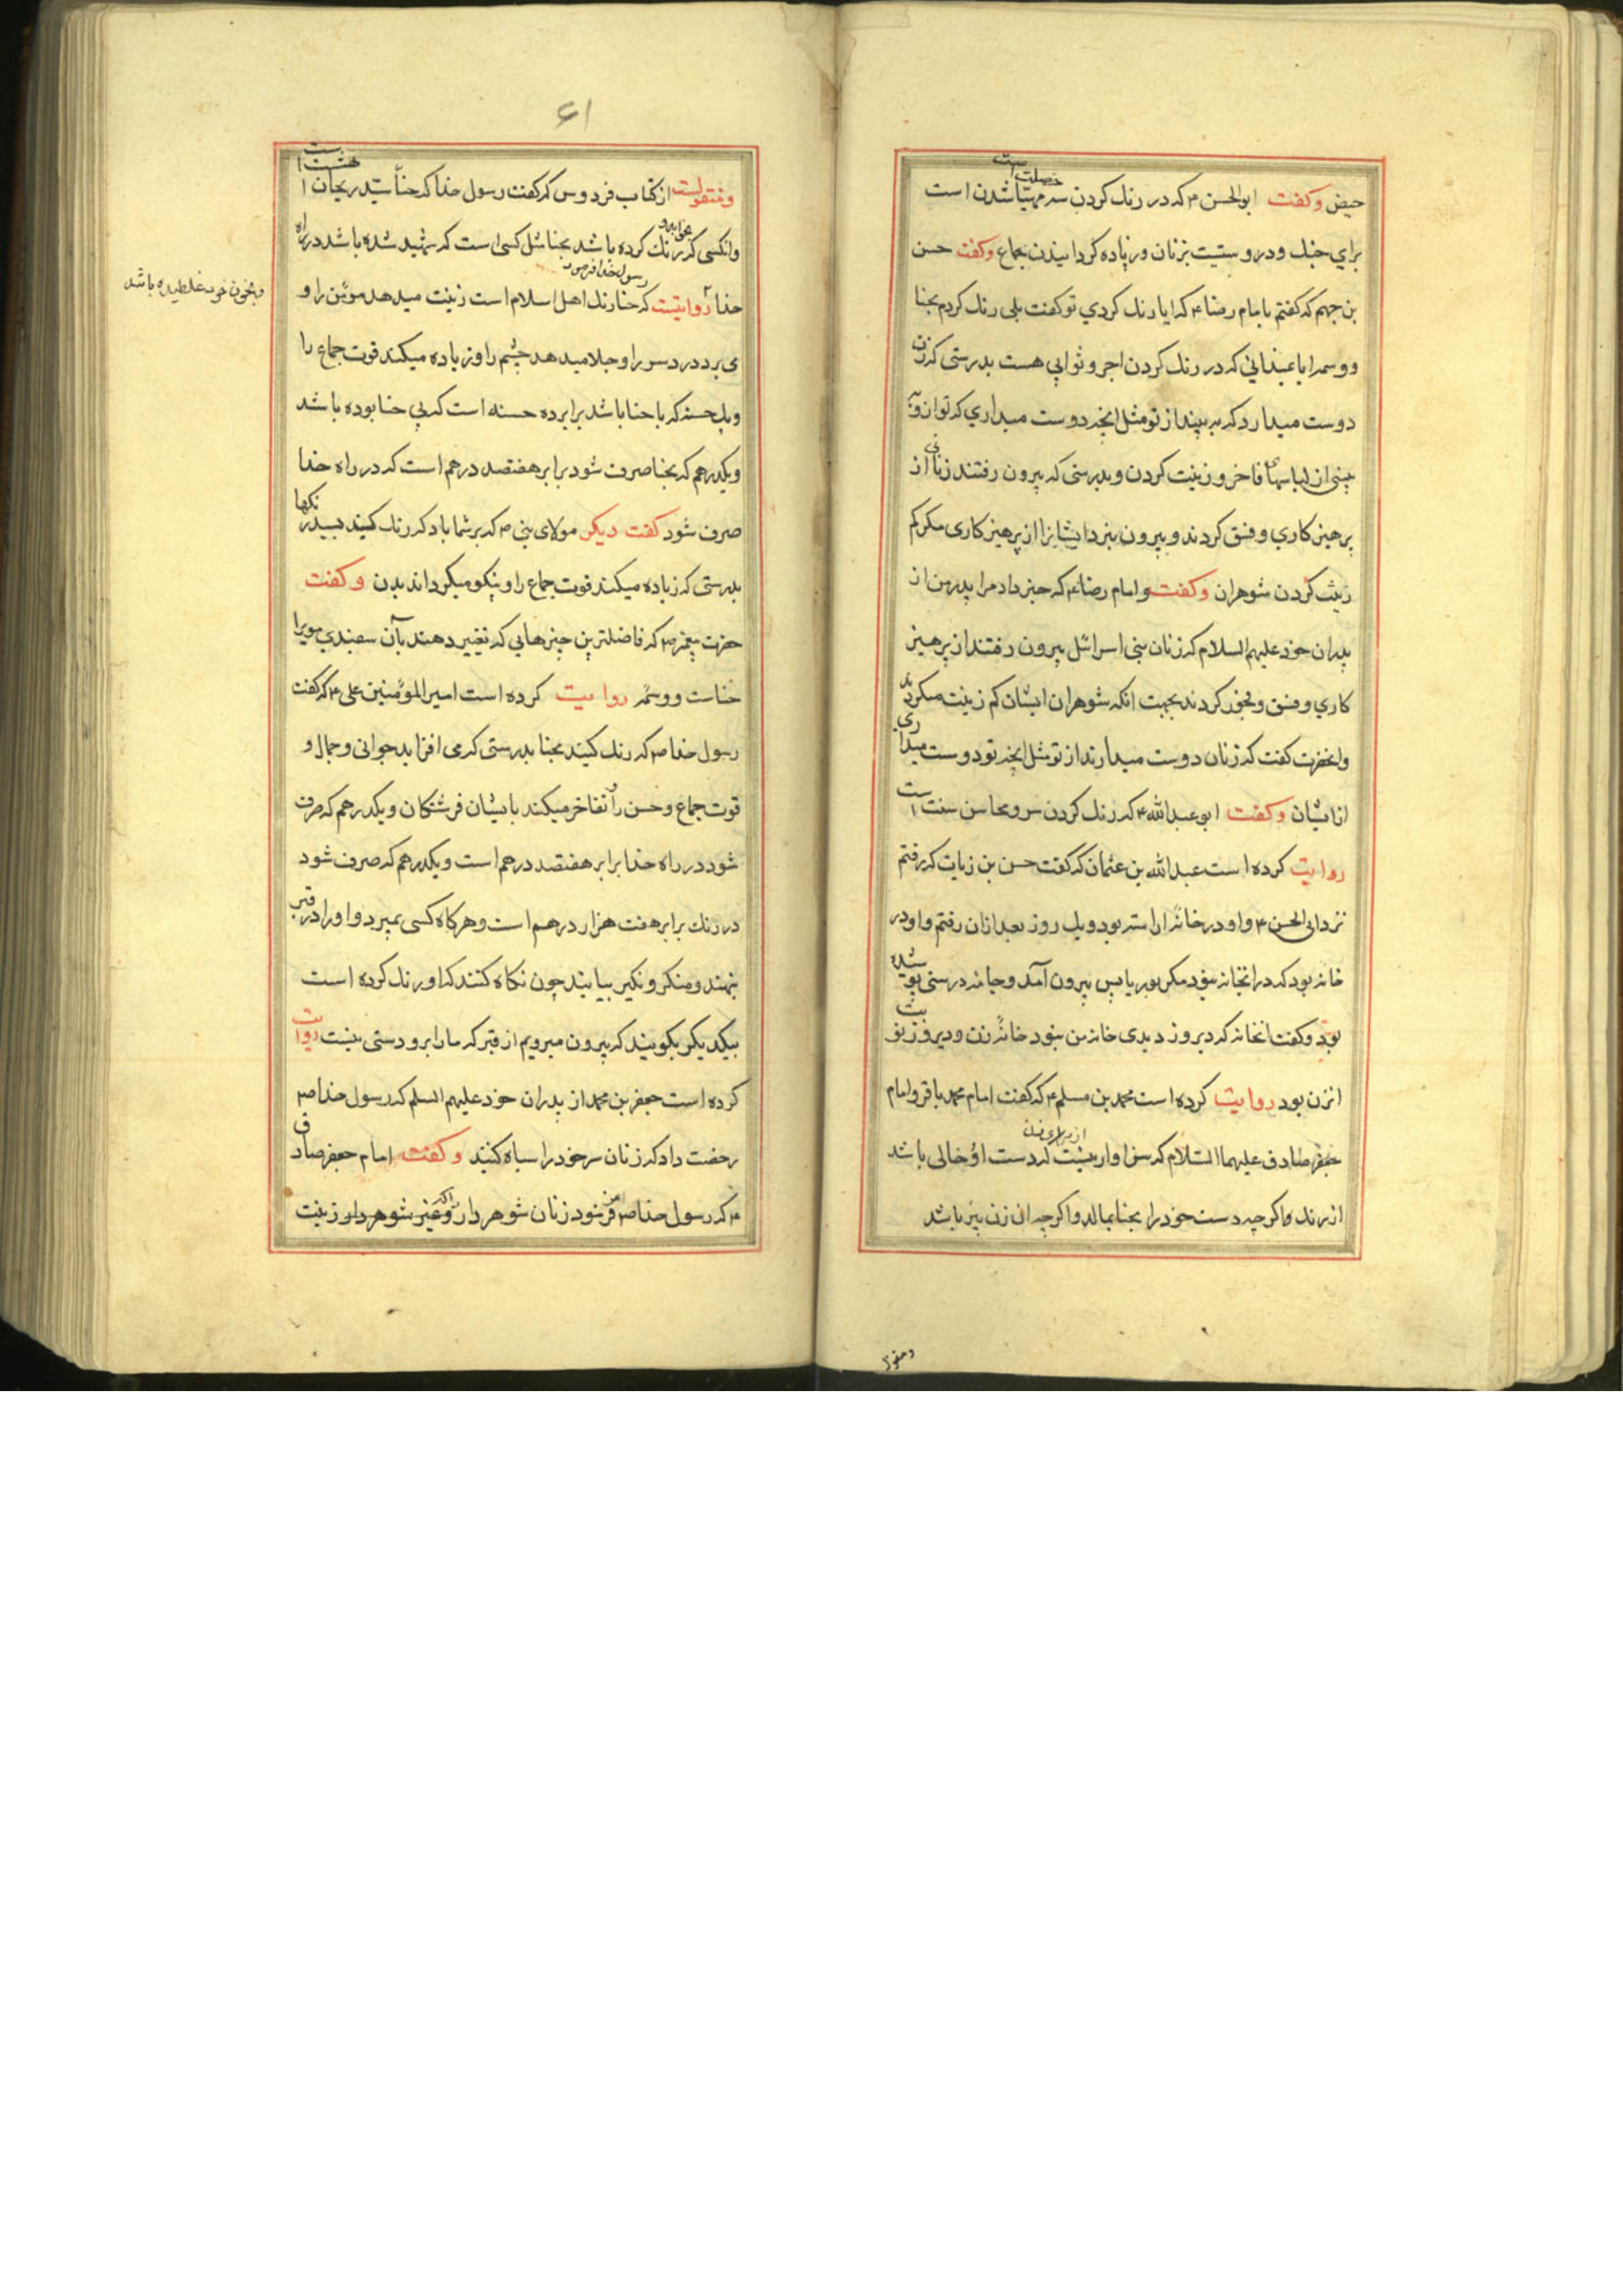 حیض وکفت ابوالحسن ۴ که در رنك کردن سه خصلت است مهیّا شدن است
برای جنك ودروستیت بزنان وزیاده کردانیدن جماع وکفت حسن
بن جهم که کفتم بامام رضا ۴ که ایا رنك کردي تو کفت بلی رنك کردم بحنا
ووسمه ایا نمیدانی که در رنك کردن اجر وثوابی هست بدرستی که زن
دوست میدارد که به بیند از تو مثل انچه دوست میداري که تو از و به
بینی از لباسهاء فاخر وزینت کردن وبدرستی که بیرون رفتند زنانی از
پرهیزکاري وفسق کردند وبیرون نبرد ایشانرا از پرهیزکاری مکر کم
زینت کردن شوهران وکفت وامام رضا ۴ که خبر داد مرا پدر من از
پدران خود علیهم السلام که زنان بنی اسرائل بیرون رفتند از پرهیز
کاري وفسق وفجور کردند بجهت انکه شوهران ایشان کم زینت میکردند
وانحضرت کفت که زنان دوست میدارند از تو مثل انچه تو دوست میداری
از ایشان وکفت ابو عبدالله ۴ که رنك کردن سر ومحاسن سنت است
روایت کرده است عبدالله بن عثمان که کفت حسن بن زیات که رفتم
نزد ابی الحسن ۴ واو در خانهٔ اراسته بود ویك روز بعد ازان رفتم واو در
خانه بود که در انخانه نبود مکر بوریا پس بیرون آمد وجامه درستی پوشیده
بود وکفت انخانه که دیروز دیدی خانه من نبود خانهٔ زن ودیروز نوبت
انزن بود روایت کرده است محمد بن مسلم ۴ که کفت امام محمد باقر وامام
جعفر صادق علیهما السّلام که سزاوار نیست از برای زن که دست او خالی باشد
از رنك واکرچه دست خود را بحنا بمالد واکرچه ان زن پیر باشد
ومنقول
۶۱
ومنقولست از کتاب فردوس که کفت رسول خدا که حنّا سیّد ریحان بهشت است
وانکسی که رنك کرده باشد بحنا مثل کسی است که شهید شده باشد در راه
وبخون خود غلطیده باشد
خدا روایتست که رسول خدا فرمود که حنا رنك اهل اسلام است زینت میدهد مؤمن را و
می برد درد سر را وجلا میدهد چشم را وزیاده میکند قوت جماع را
ویك حسنه که با حنا باشد برابر ده حسنه است که بی حنا بوده باشد
ویکدرهم که بحنا صرف شود برابر هفتصد درهم است که در راه خدا
صرف شود کفت دیکر مولای نبی ص که بر شما باد که رنك کنید بسید رنکها
بدرستی که زیاده میکند قوت جماع را ونیکو میکرداند بدن وکفت
حضرت پیغمبر ص که فاضلترین چیزهایی که تغییر دهند بآن سفیدي مویرا
حناست ووسمه روایت کرده است امیر المؤمنین علی ۴ که کفت
رسول خدا ص که رنك کنید بحنا بدرستی که می افزاید جوانی وجمال و
قوت جماع وحسن را تفاخر میکنند بایشان فرشتکان ویکدرهم که صرف
شود در راه خدا برابر هفتصد درهم است ویکدرهم که صرف شود
در رنك برابر هفت هزار درهم است وهرکاه کسی بمیرد واو را در قبر
بنهند ومنکر ونکیر بیایند چون نکاه کنند که او رنك کرده است
بیکدیکر بکویند که بیرون میرویم از قبر که ما را برو دستی نیست روایت
کرده است جعفر بن محمد از پدران خود علیهم السلم که رسول خدا ص
رخصت داد که زنان سر خود را سیاه کنند وکفت امام جعفر صادق
۴ که رسول خدا ص فرمود زنان شوهر دار وغیر شوهر دار زینت